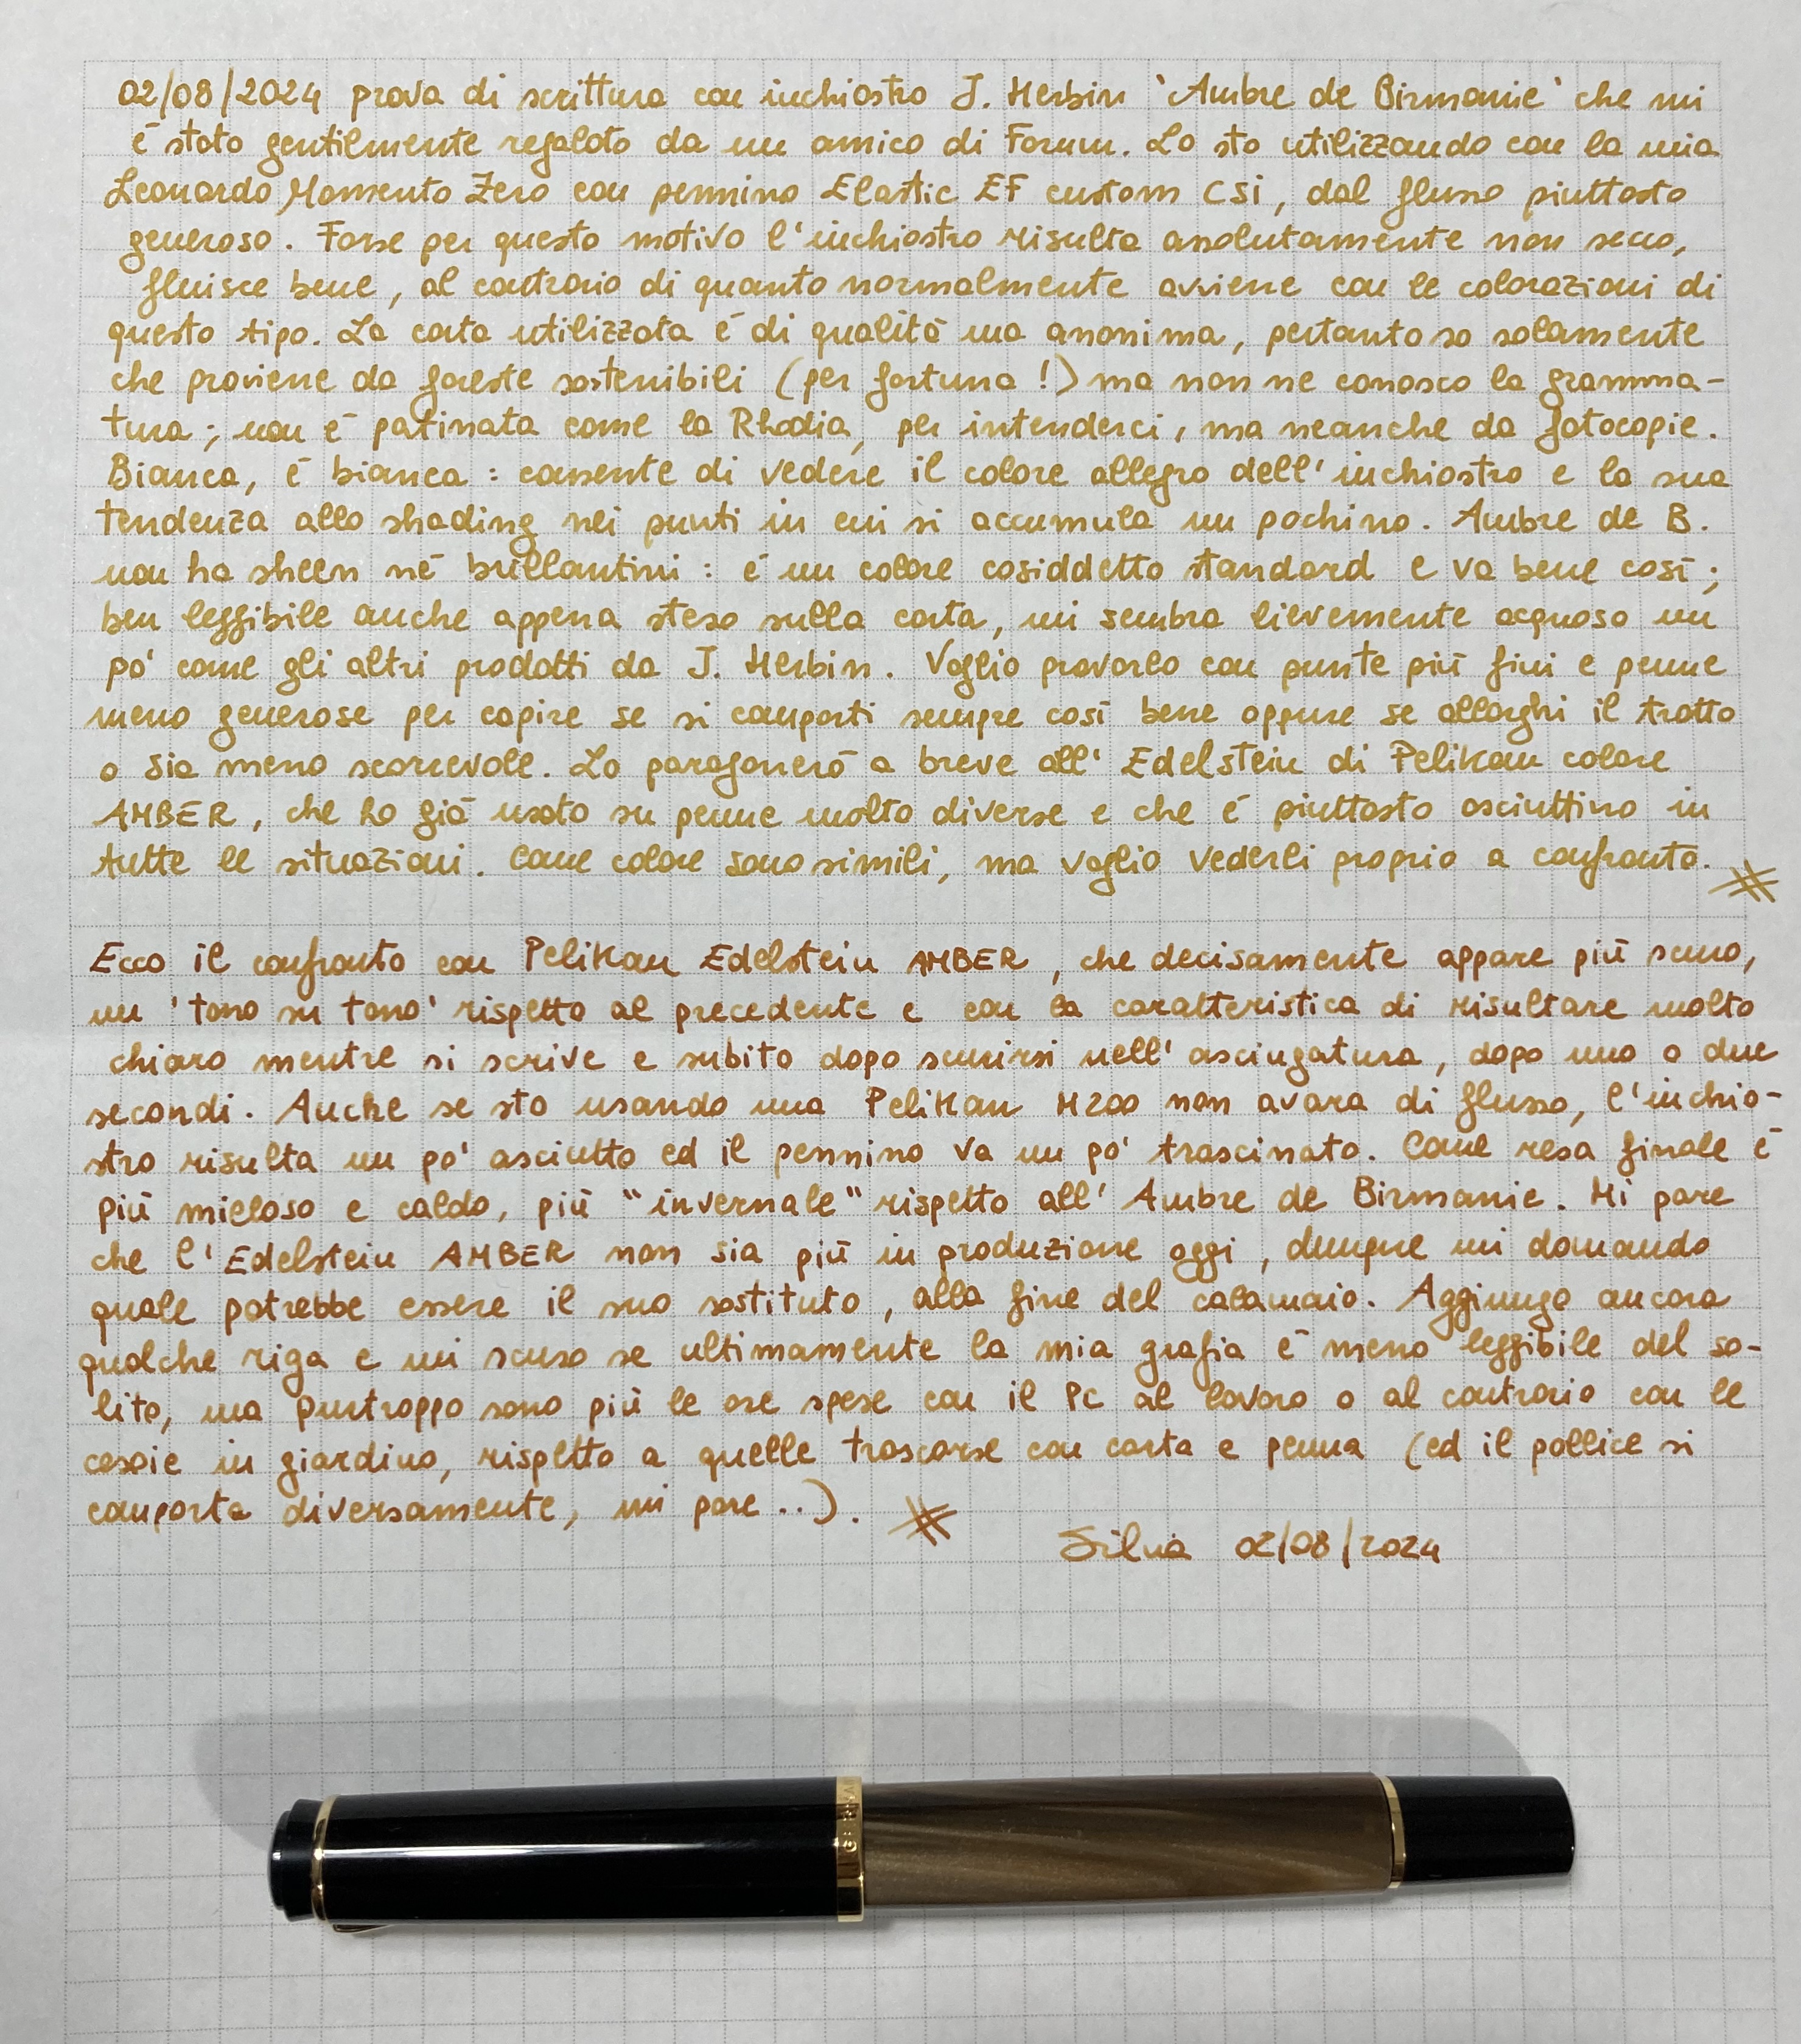 02/08/2024 prova di scrittura con inchiostro J. Herbin 'Ambre de Birmanie' che mi
è stato gentilmente regalato da un amico di Forum. Lo sto utilizzando con la mia
Leonardo Momento Zero con pennino Elastic EF custom CSI, dal flusso piuttosto
generoso. Forse per questo motivo l'inchiostro risulta assolutamente non secco,
fluisce bene, al contrario di quanto normalmente avviene con le colorazioni di
questo tipo. La carta utilizzata è di qualità ma anonima, pertanto so solamente
che proviene da foreste sostenibili (per fortuna!) ma non ne conosco la gramma-
tura; non è patinata come la Rhodia, per intenderci, ma neanche da fotocopie.
Bianca, è bianca: consente di vedere il colore allegro dell'inchiostro e la sua
tendenza allo shading nei punti in cui si accumula un pochino. Ambre de B.
non ha sheen né brillantini: è un colore cosiddetto standard e va bene così;
ben leggibile anche appena steso sulla carta, mi sembra lievemente acquoso un
po' come gli altri prodotti da J. Herbin. Voglio provarlo con punte più fini e penne
meno generose per capire se si comporti sempre così bene oppure se allarghi il tratto
o sia meno scorrevole. Lo paragonerò a breve all'Edelstein di Pelikan colore
AMBER, che ho già usato su penne molto diverse e che è piuttosto asciuttino in
tutte le situazioni. Come colore sono simili, ma voglio vederli proprio a confronto.
Ecco il confronto con Pelikan Edelstein AMBER, che decisamente appare più scuro,
un 'tono su tono' rispetto al precedente e con la caratteristica di risultare molto
chiaro mentre si scrive e subito dopo scurirsi nell'asciugatura, dopo uno o due
secondi. Anche se sto usando una Pelikan M200 non avara di flusso, l'inchio-
stro risulta un po' asciutto ed il pennino va un po' trascinato. Come resa finale è
più mieloso e caldo, più "invernale" rispetto all'Ambre de Birmanie. Mi pare
che l'Edelstein AMBER non sia più in produzione oggi, dunque mi domando
quale potrebbe essere il suo sostituto, alla fine del calamaio. Aggiungo ancora
qualche riga e mi scuso se ultimamente la mia grafia è meno leggibile del so-
lito, ma purtroppo sono più le ore spese con il Pc al lavoro o al contrario con le
cesoie in giardino, rispetto a quelle trascorse con carta e penna (ed il pollice si
comporta diversamente, mi pare..).
Silvia 02/08/2024